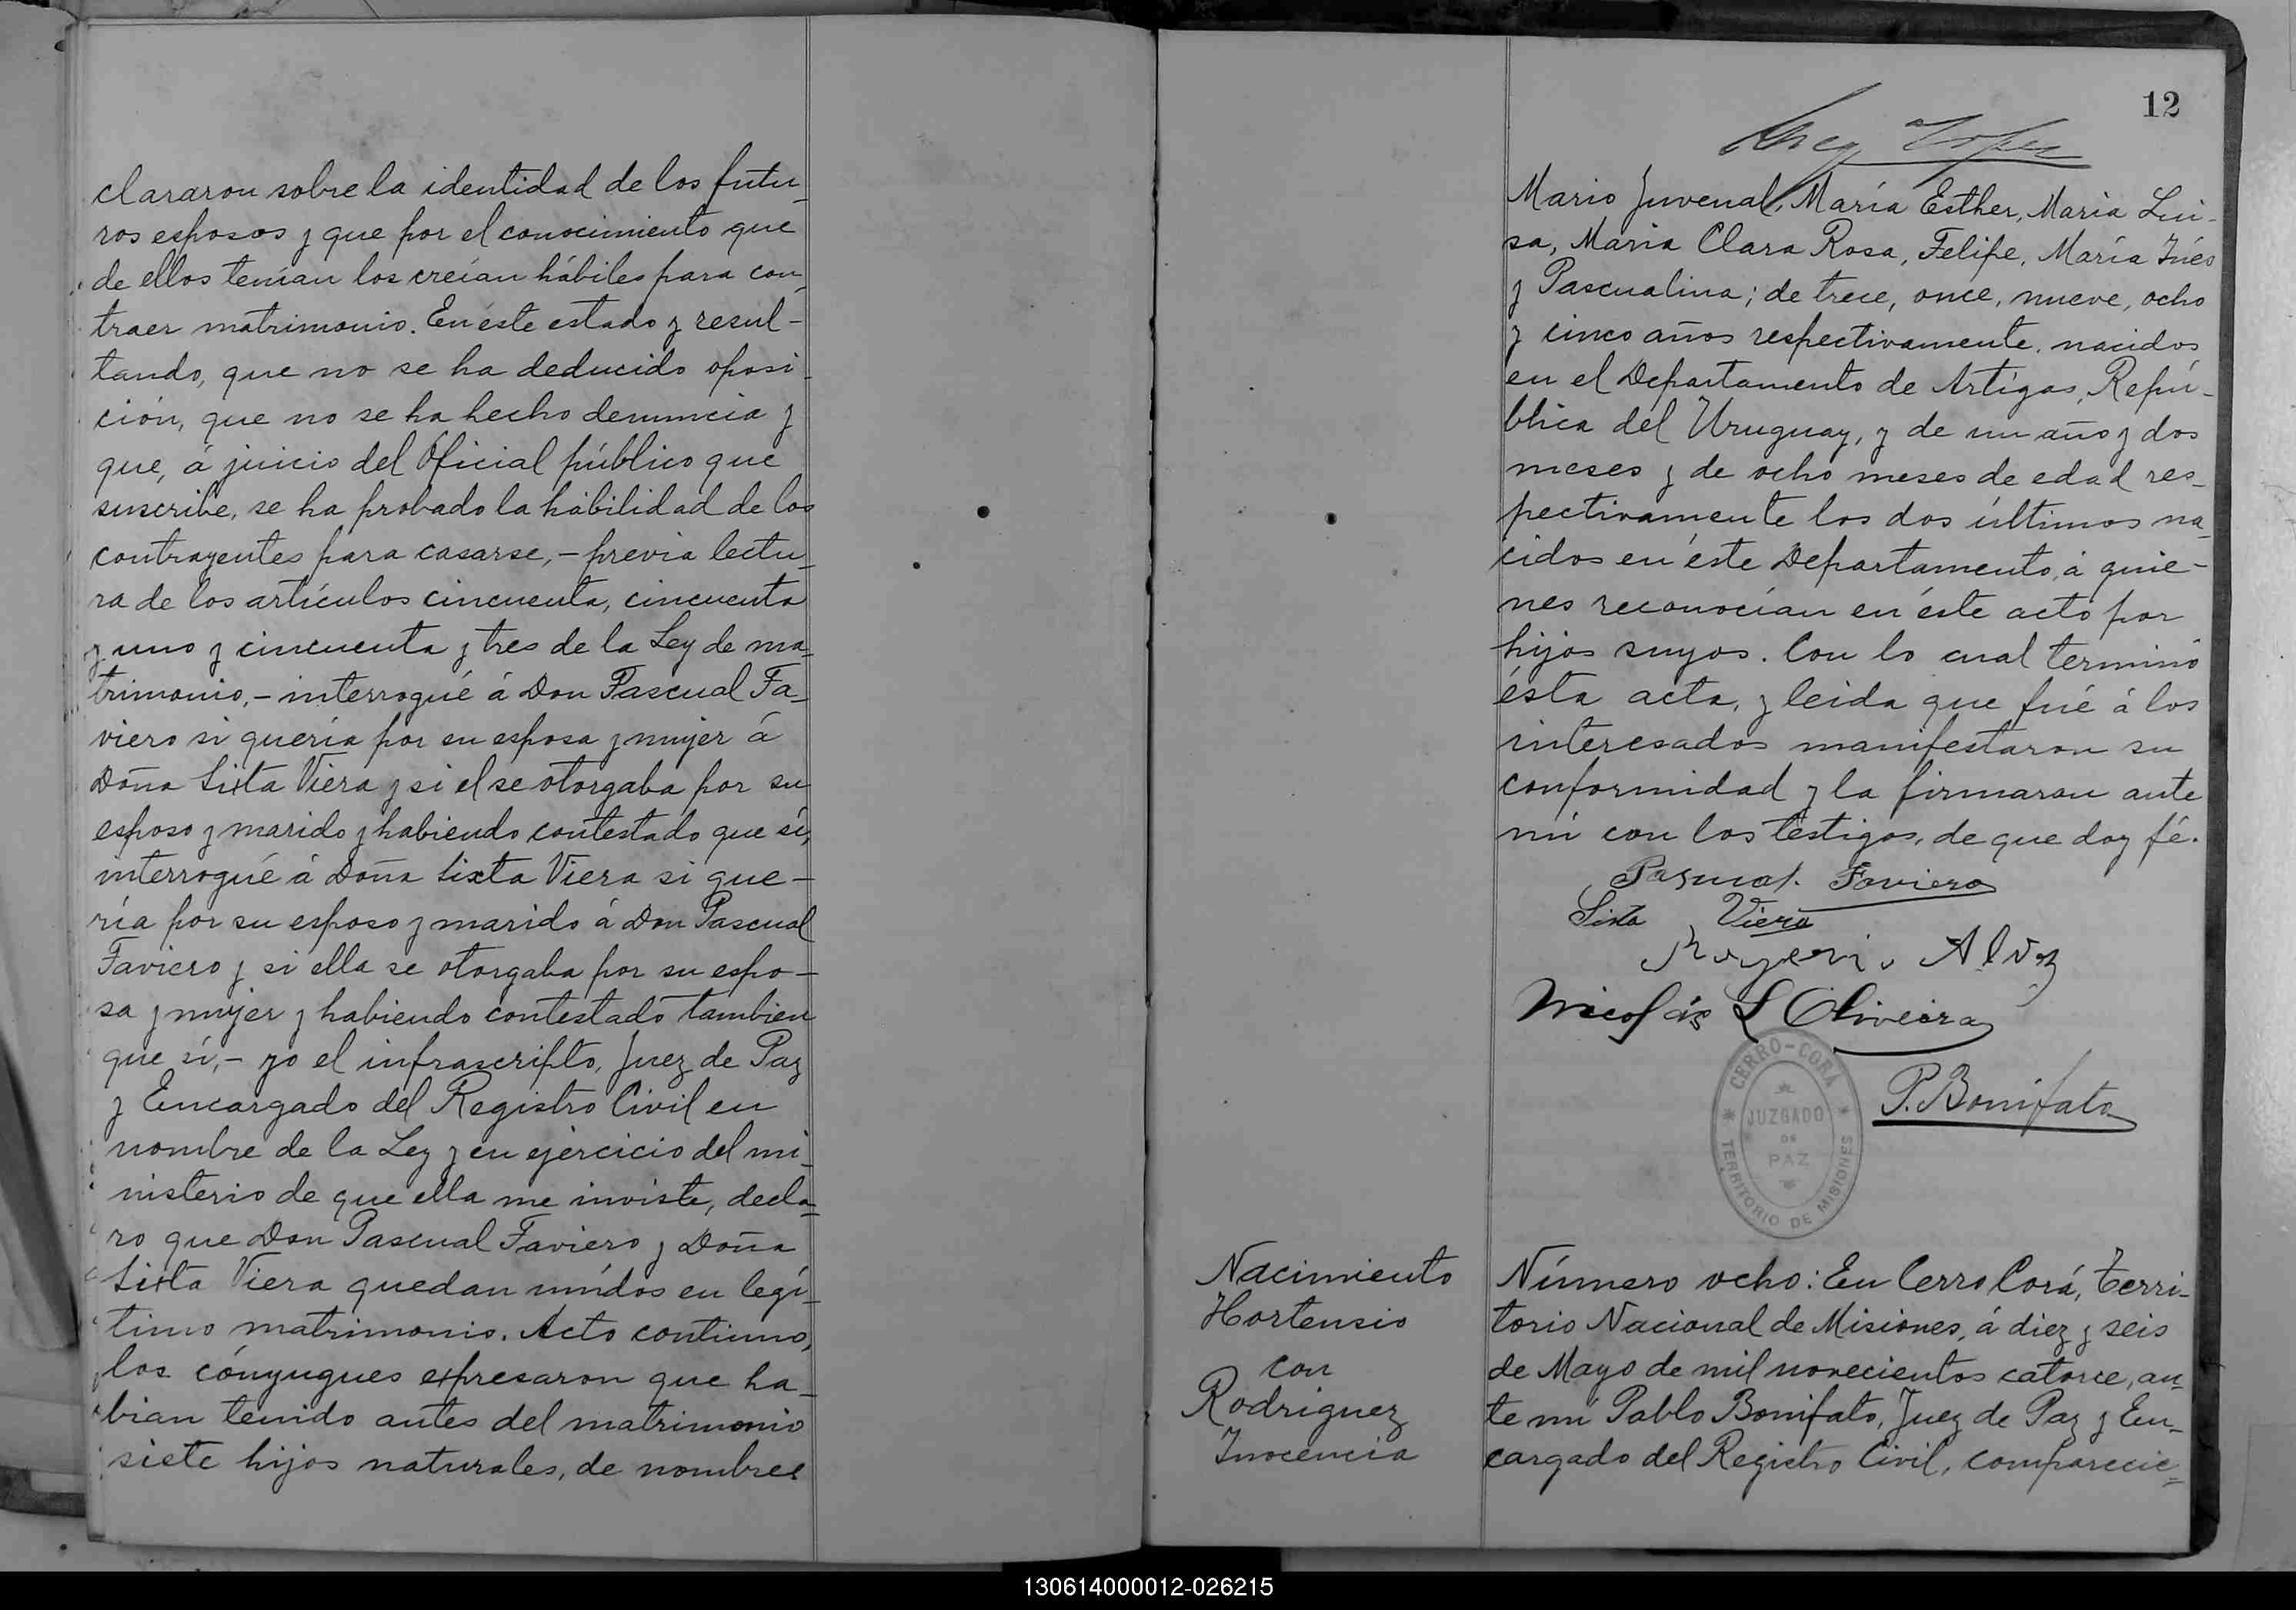 clararon sobre la identidad de los futu-
ros esposos y que por el conocimiento que
de ellos tenían los creían hábiles para con-
traer matrimonio. En éste estado y resul-
tando, que no se ha deducido oposi-
ción, que no se ha hecho denuncia y
que, á juicio del Oficial público que
suscribe, se ha probado la habilidad de los
contrayentes para casarse,- previa lectu-
ra de los artículos cincuenta, cincuenta
y uno y cincuenta y tres de la Ley de ma-
trimonio,- interrogué á Don Pascual Fa-
viero si quería por su esposa y mujer á
Doña Sixta Viera y si el se otorgaba por su
esposo y marido y habiendo contestado que sí,
interrogué á Doña Sixta Viera si que-
ría por su esposo y marido á Don Pascual
Faviero y si ella se otorgaba por su espo-
sa y mujer y habiendo contestado tambien
que sí,- yo el infrascripto, Juez de Paz
y Encargado del Registro Civil en
nombre de la Ley y en ejercicio del mi-
nisterio de que ella me inviste, decla-
ro que Don Pascual Faviero y Doña
Sixta Viera quedan unidos en legí-
timo matrimonio. Acto continuo,
los cónyugues expresaron que ha-
bian tenido antes del matrimonio
siete hijos naturales, de nombres
12
Mario Juvenal, María Esther, Maria Lui-
sa, Maria Clara Rosa, Felipe, María Inés
y Pascualina; de trece, once, nueve, ocho
y cinco años respectivamente, nacidos
en el Departamento de Artigas, Repú-
blica del Uruguay, y de un año y dos
meses y de ocho meses de edad res-
pectivamente los dos últimos na-
cidos en éste Departamento, á quie-
nes reconocían en éste acto por
hijos suyos. Con lo cual terminó
ésta acta, y leida que fué á los
interesados manifestaron su
conformidad y la firmaron ante
mí con los testigos, de que doy fé.
Pascual Faviero
Sixta Viera
Rogerio Alvez
Nicolás L Oliveira
P. Bonifato
CERRO-CORÁ
JUZGADO
DE
PAZ
TERRITORIO DE MISIONES
Nacimiento
Hortensio
con
Rodriguez
Inocencia
Número ocho: En Cerro Corá, Terri-
torio Nacional de Misiones, á diez y seis
de Mayo de mil novecientos catorce, an-
te mí Pablo Bonifato, Juez de Paz y En-
cargado del Registro Civil, comparecie-
130614000012-026215